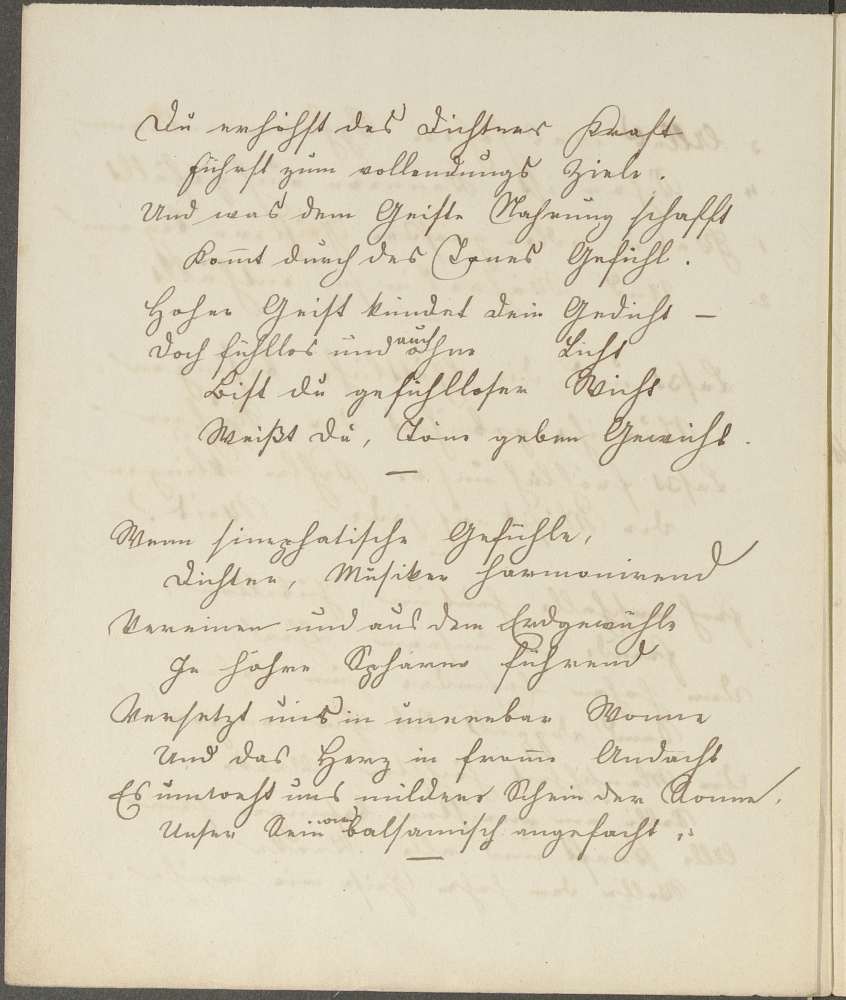 Du erhöhst des Dichters Kraft
Führst zum vollendungs Ziele.
Und was dem Geiste Nahrung schafft
Kom̅t durch des Tones Gefühl.
Hoher Geist kündet dein Gedicht —
Doch fühllos und auch ohne Licht
Bist du gefühlloser Wicht
Weißt du, Töne geben Gewicht.
—
Wenn simphatische Gefühle,
Dichter, Musiker harmonirend
Vereinen und aus dem Erdgewühle
In höhre Sphären führend
Versetzt uns in unnenbar Wonne
Und das Herz in from̅e Andacht
Es umweht uns milderer Schein der Sonne,
Unser Sein wird balsamisch angefacht
—